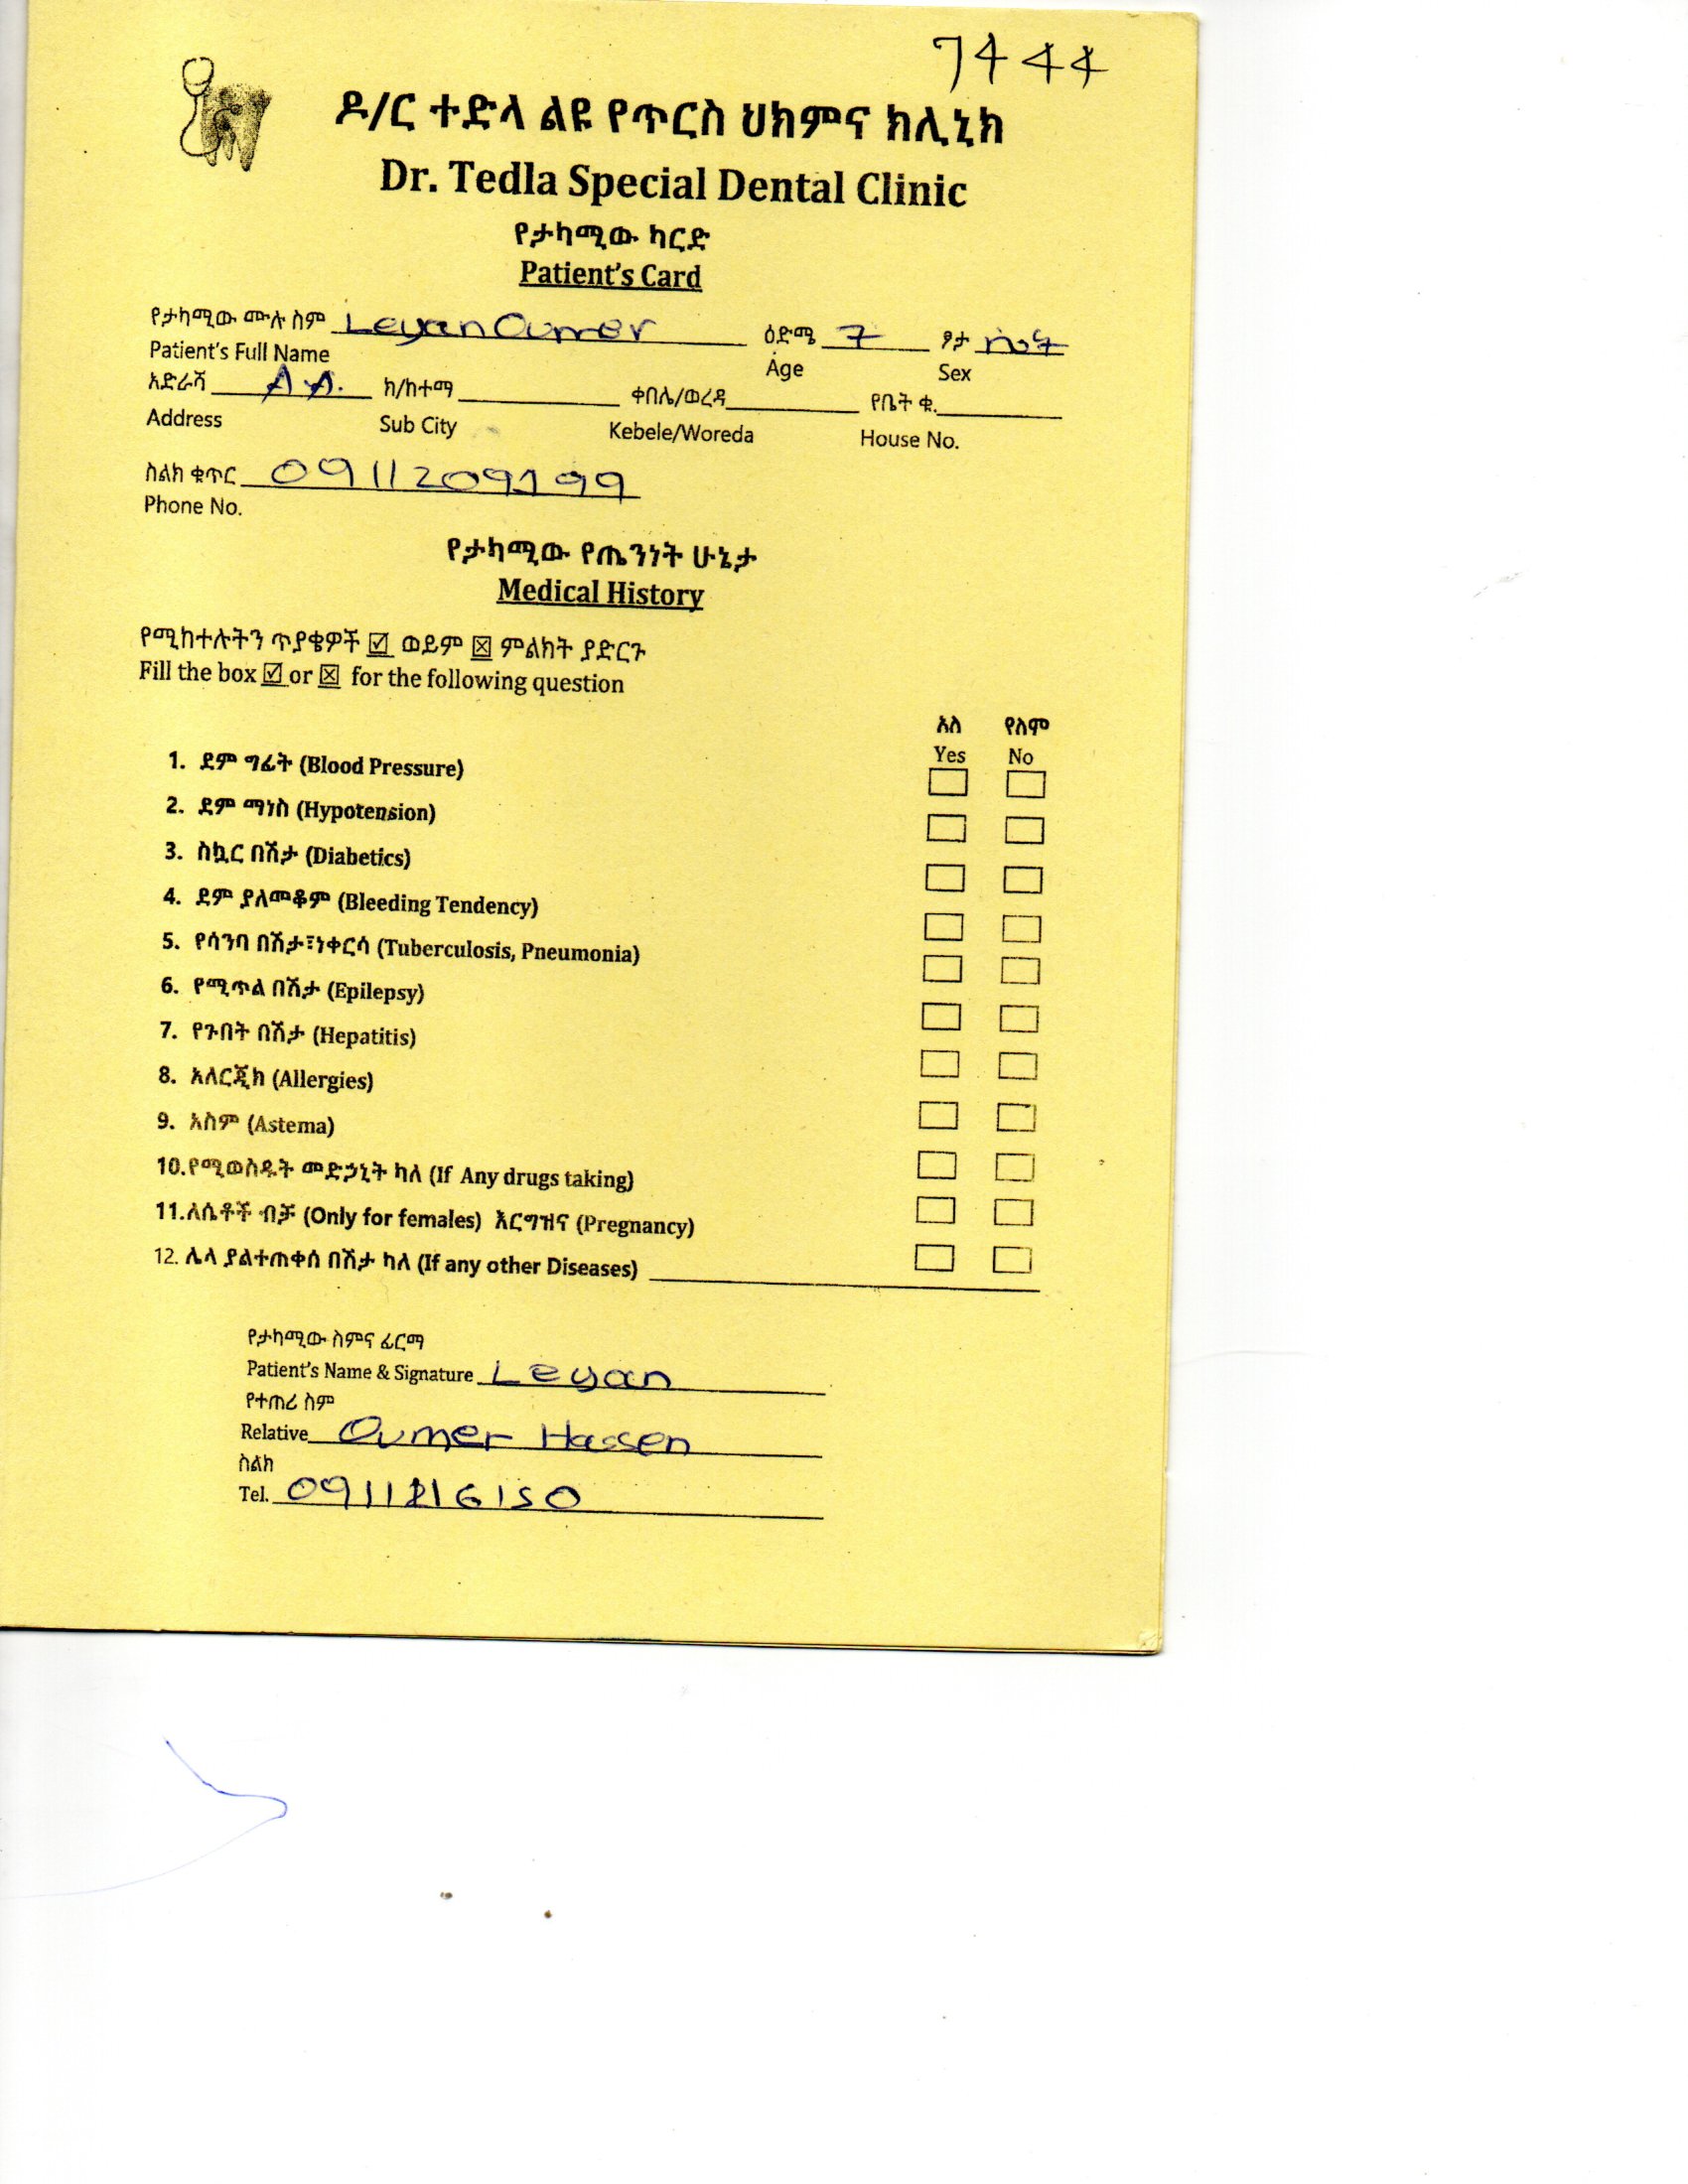 7444
ዶ/ር ተድላ ልዩ የጥርስ ህክምና ክሊኒክ
Dr. Tedla Special Dental Clinic
የታካሚው ካርድ
Patient's Card
የታካሚው ሙሉ ስም Leyan Oumer ዕድሜ 7 ፆታ
Patient's Full Name Age Sex
አድራሻ A.A. ክ/ከተማ ቀበሌ/ወረዳ የቤት ቁ.
Address Sub City Kebele/Woreda House No.
ስልክ ቁጥር 0911209199
Phone No.
የታካሚው የጤንነት ሁኔታ
Medical History
የሚከተሉትን ጥያቄዎች ☑ ወይም ☒ ምልክት ያድርጉ
Fill the box ☑ or ☒ for the following question
አለ የለም
Yes No
1. ደም ግፊት (Blood Pressure)
2. ደም ማነስ (Hypotension)
3. ስኳር በሽታ (Diabetics)
4. ደም ያለመቆም (Bleeding Tendency)
5. የሳንባ በሽታ፣ነቀርሳ (Tuberculosis, Pneumonia)
6. የሚጥል በሽታ (Epilepsy)
7. የጉበት በሽታ (Hepatitis)
8. አለርጂክ (Allergies)
9. አስም (Astema)
10.የሚወስዱት መድኃኒት ካለ (If Any drugs taking)
11.ለሴቶች ብቻ (Only for females) እርግዝና (Pregnancy)
12. ሌላ ያልተጠቀሰ በሽታ ካለ (If any other Diseases)
የታካሚው ስምና ፊርማ
Patient's Name & Signature Leyan
የተጠሪ ስም
Relative Oumer Hassen
ስልክ
Tel.